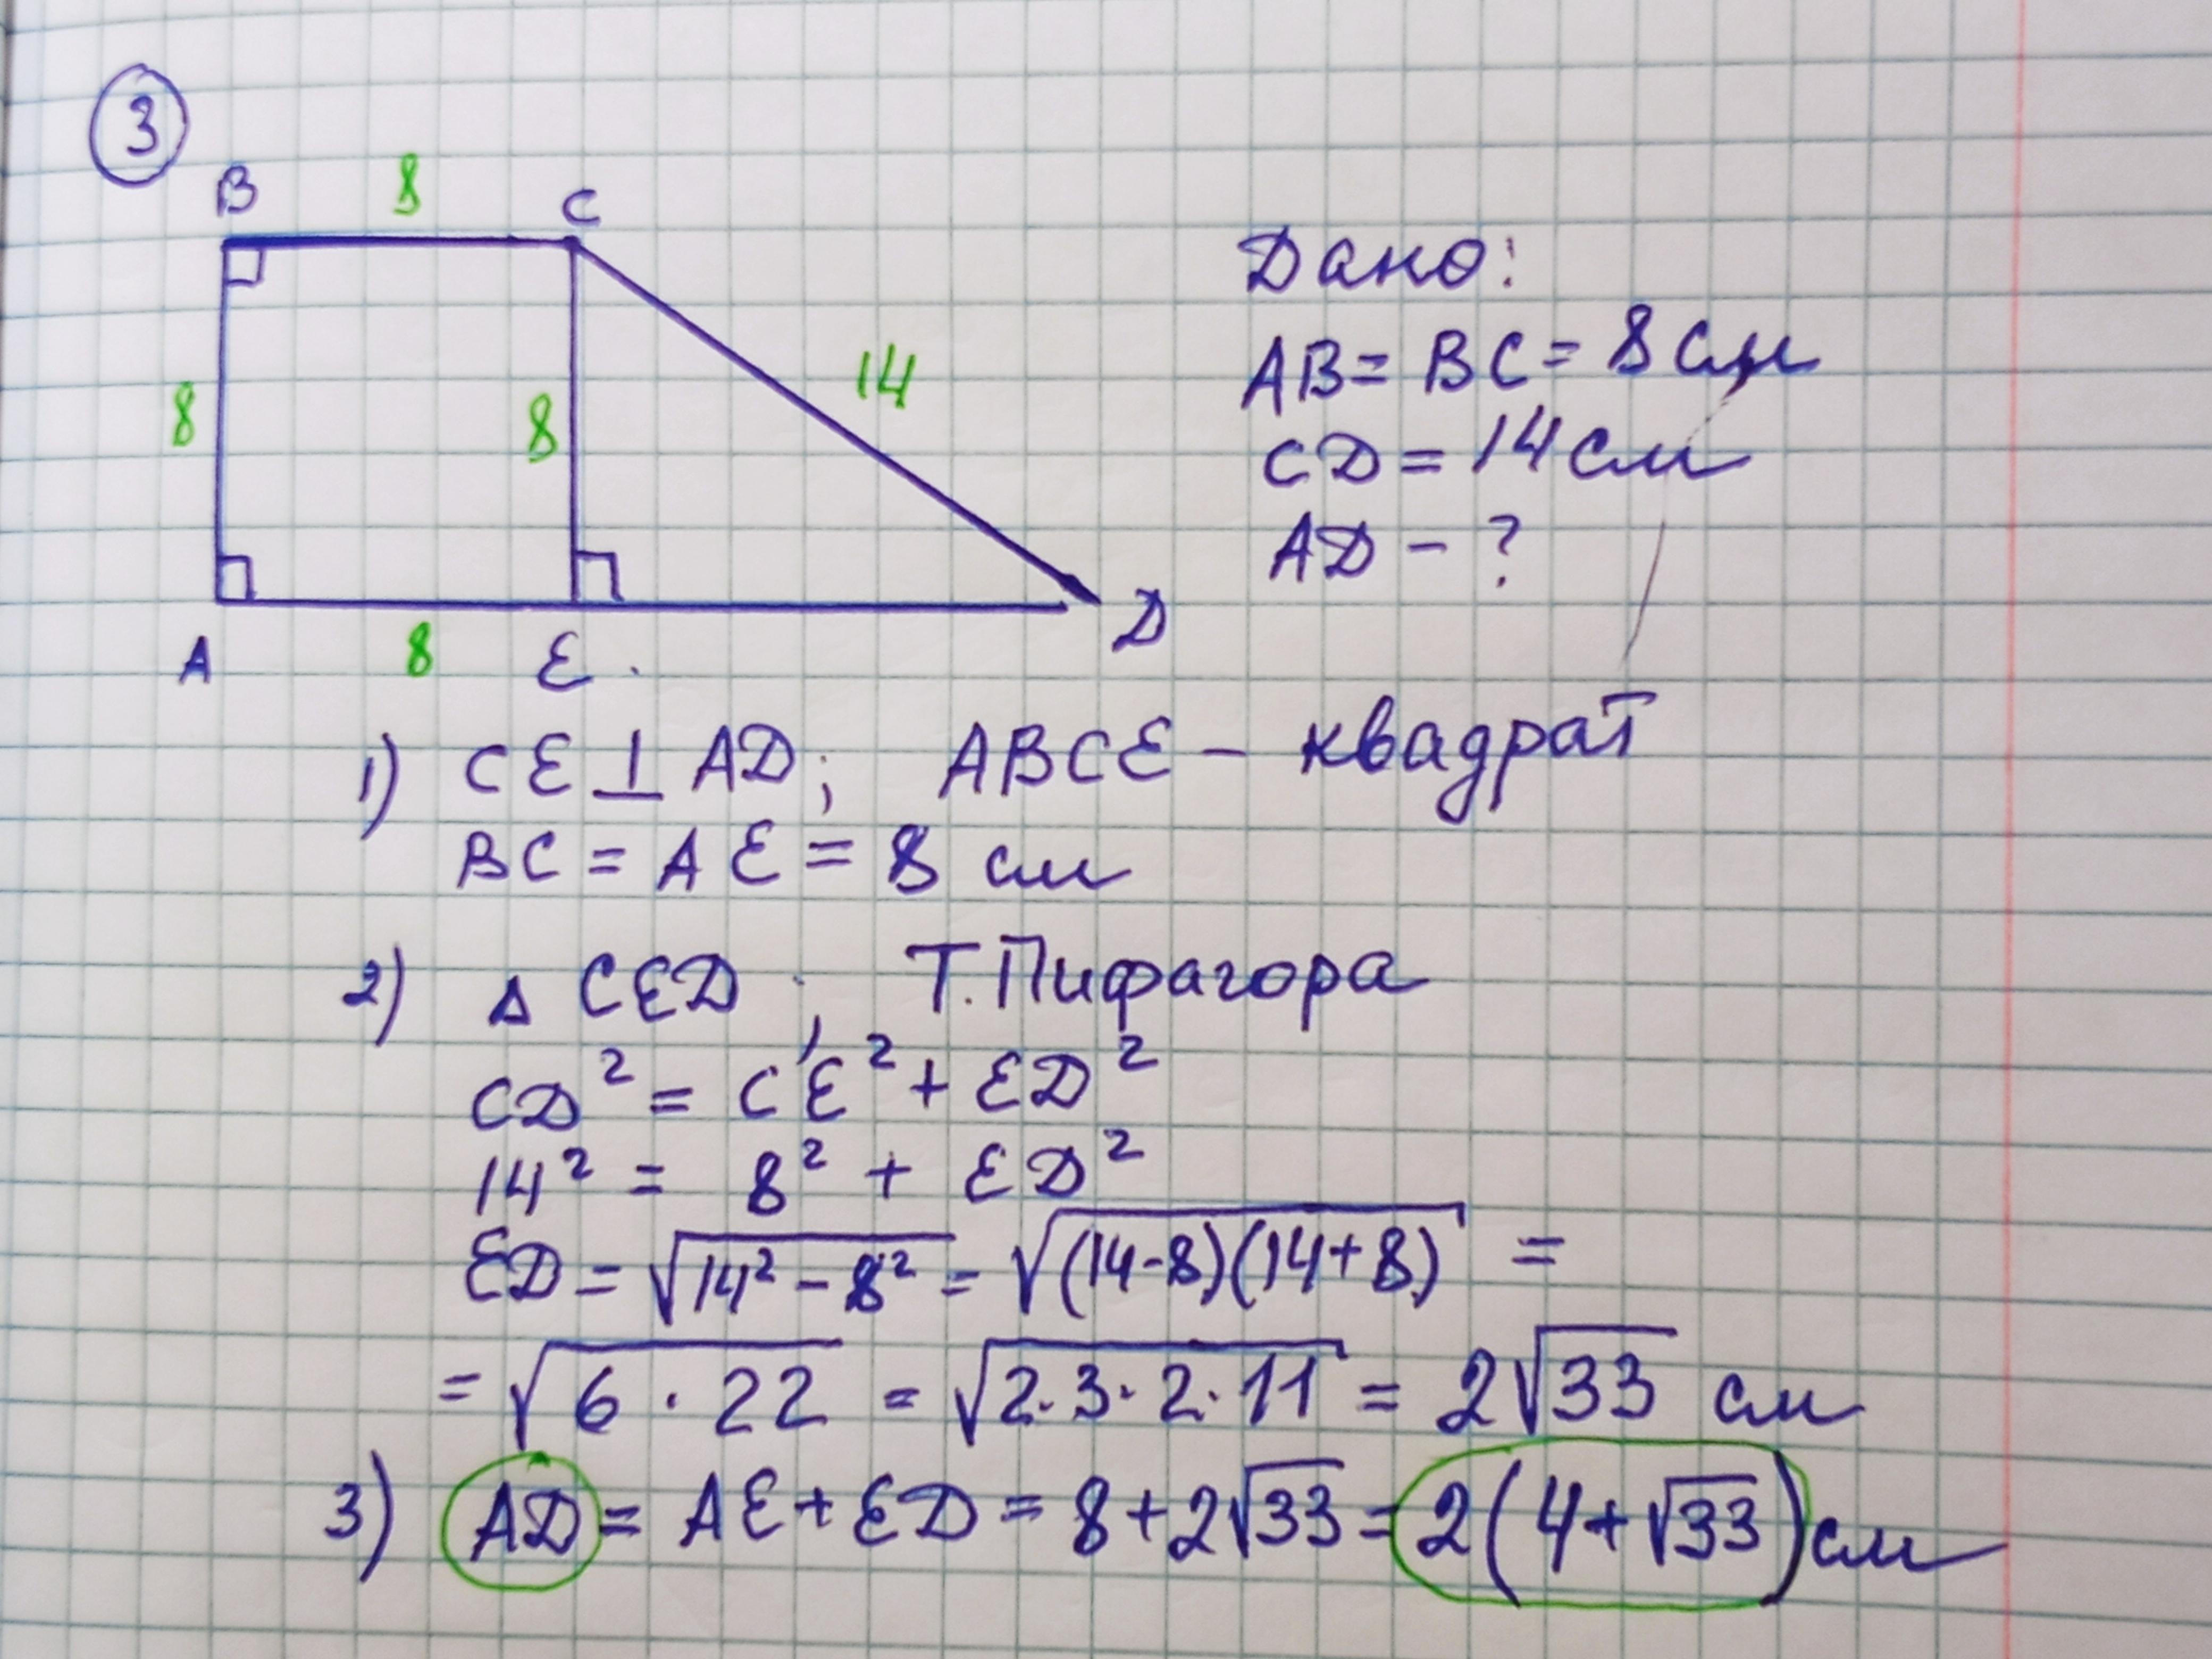 3
B 8 C
Дано:
AB = BC = 8 см
8 8 14
CD = 14 см
AD - ?
A 8 E D
1) CE ⊥ AD; ABCE - квадрат
BC = AE = 8 см
2) △ CED; Т.Пифагора
CD² = CE² + ED²
14² = 8² + ED²
ED = √(14² - 8²) = √((14-8)(14+8)) =
= √(6 · 22) = √(2·3·2·11) = 2√33 см
3) AD = AE + ED = 8 + 2√33 = 2(4+√33) см